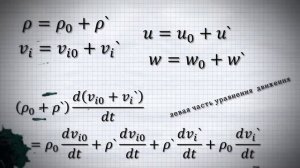 ρ = ρ₀ + ρ`
vᵢ = vᵢ₀ + vᵢ`
u = u₀ + u`
w = w₀ + w`
(ρ₀ + ρ`) d(vᵢ₀ + vᵢ`)/dt
левая часть уравнения движения
= ρ₀ dvᵢ₀/dt + ρ` dvᵢ₀/dt + ρ` dvᵢ`/dt + ρ₀ dvᵢ`/dt